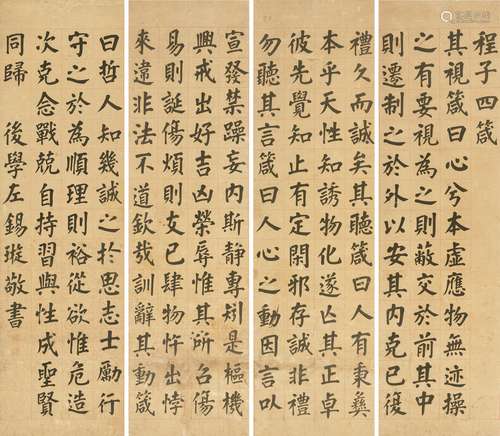 程子四箴
其視箴曰心兮本虛應物無迹操
之有要視為之則蔽交於前其中
則遷制之於外以安其內克己復
禮久而誠矣其聽箴曰人有秉彝
本乎天性知誘物化遂亡其正卓
彼先覺知止有定閑邪存誠非禮
勿聽其言箴曰人心之動因言以
宣發禁躁妄內斯靜專矧是樞機
興戎出好吉凶榮辱惟其所召傷
易則誕傷煩則支己肆物忤出悖
來違非法不道欽哉訓辭其動箴
曰哲人知幾誠之於思志士勵行
守之於為順理則裕從欲惟危造
次克念戰兢自持習與性成聖賢
同歸 後學左錫璇敬書